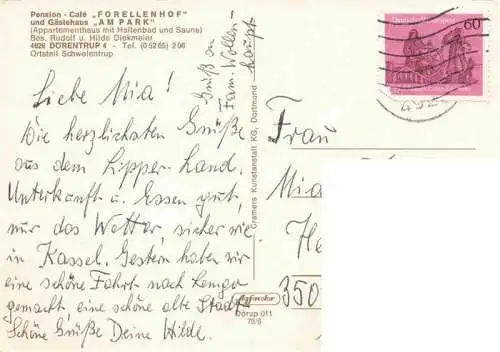 Pension - Café „FORELLENHOF"
und Gästehaus „AM PARK"
(Appartementhaus mit Hallenbad und Sauna)
Bes. Rudolf u. Hilde Diekmeier
4926 DÖRENTRUP 4 - Tel. (05265) 206
Ortsteil Schwelentrup
Liebe Mia!
Die herzlichsten Grüße
aus dem Lipper-Land.
Unterkunft u. Essen gut,
nur das Wetter, sicher wie
in Kassel. Gestern haben wir
eine schöne Fahrt nach Lemgo
gemacht, eine schöne alte Stadt
Schöne Grüße Deine Hilde.
Gruß an
Fam. Wollen-
haupt
Cramers Kunstanstalt KG, Dortmund
Dörup 011
75/6
60
Frau
Mia
He
350